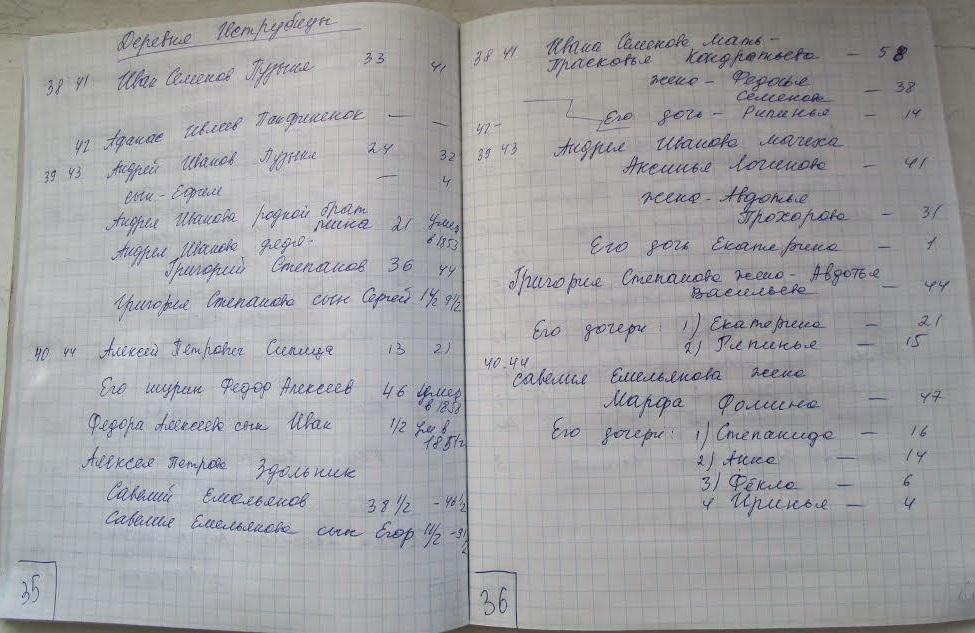 Деревня Иструбицы
38 41 Иван Семенов Пузыня 33 41
42 Афанас Ивлеев Панфиненок — —
39 43 Андрей Иванов Пузыня 24 32
сын - Ефрем — 4
Андрея Иванова родной брат
Мина 21 умер в 1853
Андрея Иванова дядя-
Григорий Степанов 36 44
Григория Степанова сын Сергей 1 1/2 9 1/2
40 44 Алексей Петрович Синица 13 21
Его шурин Федор Алексеев 46 умер в 1858
Федора Алексеева сын Иван 1/2 ум в 1851г
Алексея Петрова Здольник
Савелий Емельянов 38 1/2 - 46 1/2
Савелия Емельянова сын Егор 1 1/2 - 9 1/2
35
38 41 Ивана Семенова мать -
Прасковья Кондратьева — 58
жена - Федосья
Семенова — 38
Его дочь - Рипинья — 14
42 -
39 43 Андрея Иванова мачеха
Аксинья Логинова — 41
жена - Авдотья
Прохорова — 31
Его дочь Екатерина — 1
Григория Степанова жена - Авдотья
Васильева — 44
Его дочери: 1) Екатерина — 21
2) Рипинья — 15
40-44
Савелия Емельянова жена
Марфа Фомина — 47
Его дочери: 1) Степанида — 16
2) Анна — 14
3) Фёкла — 6
4 Иринья — 4
36